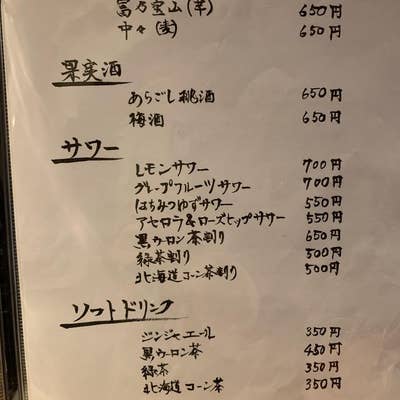 富乃宝山(芋) 650円
中々(麦) 650円
果実酒
あらごし桃酒 650円
梅酒 650円
サワー
レモンサワー 700円
グレープフルーツサワー 700円
はちみつゆずサワー 550円
アセロラ&ローズヒップサワー 550円
黒ウーロン茶割り 650円
緑茶割り 500円
北海道コーン茶割り 500円
ソフトドリンク
ジンジャエール 350円
黒ウーロン茶 450円
緑茶 350円
北海道コーン茶 350円